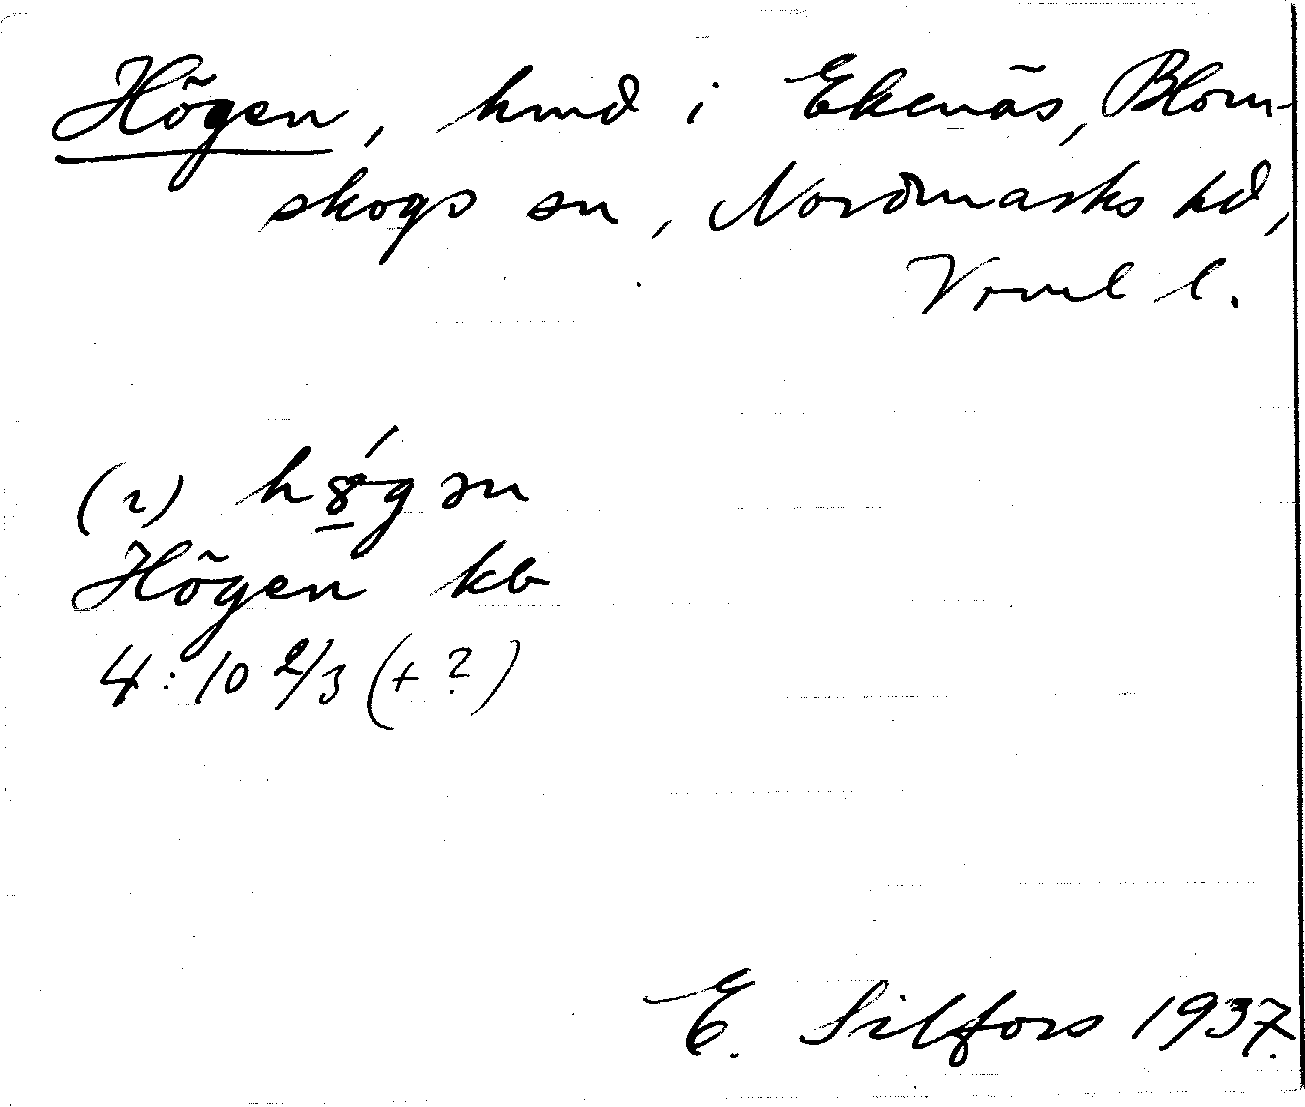 Högen, hmd i Ekenäs, Blom-
skogs sn, Nordmarks hd,
Vrml l.
(2) hǿ̱gən
Högen kb
4:10 2/3 (+ ?)
E. Silfors 1937.